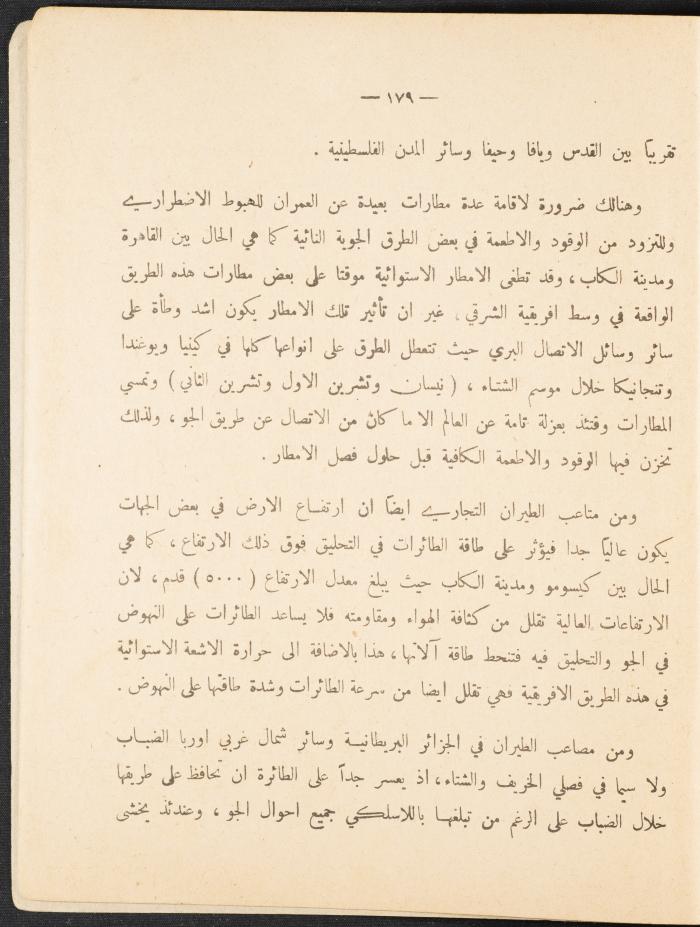 — ١٧٩ —
تقريباً بين القدس ويافا وحيفا وسائر المدن الفلسطينية .
وهنالك ضرورة لاقامة عدة مطارات بعيدة عن العمران للهبوط الاضطراري
وللتزود من الوقود والاطعمة في بعض الطرق الجوية النائية كما هي الحال بين القاهرة
ومدينة الكاب ، وقد تطغى الامطار الاستوائية موقتا على بعض مطارات هذه الطريق
الواقعة في وسط افريقية الشرقي . غير ان تأثير تلك الامطار يكون اشد وطأة على
سائر وسائل الاتصال البري حيث تتعطل الطرق على انواعها كلها في كينيا ويوغندا
وتنجانيكا خلال موسم الشتاء ، ( نيسان وتشرين الاول وتشرين الثاني ) وتمسي
المطارات وقتئذ بعزلة تامة عن العالم الا ما كان من الاتصال عن طريق الجو ، ولذلك
تخزن فيها الوقود والاطعمة الكافية قبل حلول فصل الامطار .
ومن متاعب الطيران التجاري ايضاً ان ارتفاع الارض في بعض الجهات
يكون عالياً جدا فيؤثر على طاقة الطائرات في التحليق فوق ذلك الارتفاع ، كما هي
الحال بين كيسومو ومدينة الكاب حيث يبلغ معدل الارتفاع ( ٥٠٠٠ ) قدم ، لان
الارتفاعات العالية تقلل من كثافة الهواء ومقاومته فلا يساعد الطائرات على النهوض
في الجو والتحليق فيه فتنحط طاقة آلاتها ، هذا بالاضافة الى حرارة الاشعة الاستوائية
في هذه الطريق الافريقية فهي تقلل ايضا من سرعة الطائرات وشدة طاقتها على النهوض .
ومن مصاعب الطيران في الجزائر البريطانية وسائر شمال غربي اوربا الضباب
ولا سيما في فصلي الخريف والشتاء ، اذ يعسر جداً على الطائرة ان تحافظ على طريقها
خلال الضباب على الرغم من تبلغها باللاسلكي جميع احوال الجو ، وعندئذ يخشى